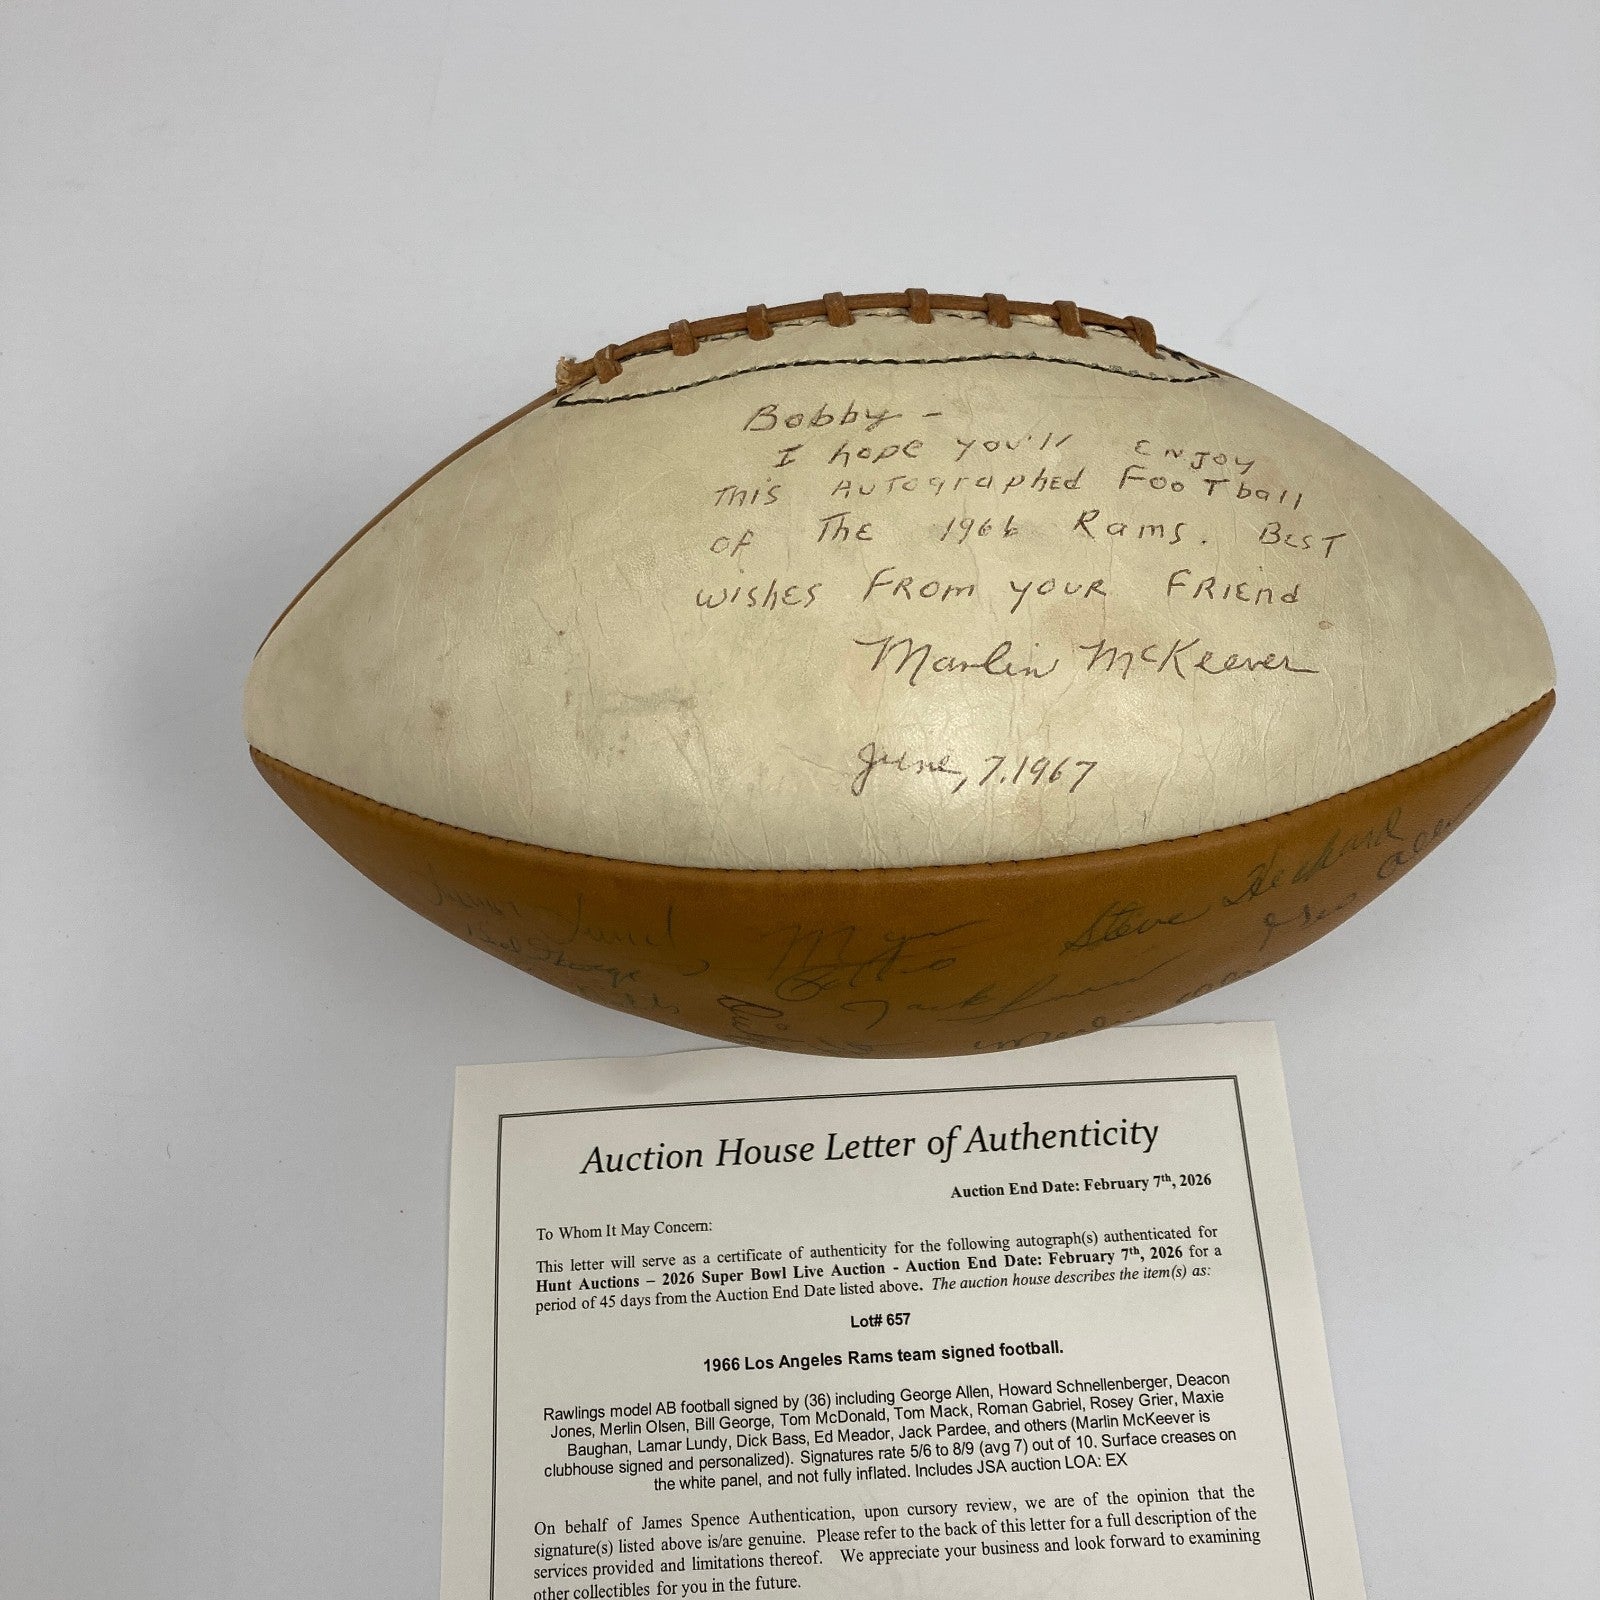 Bobby -
I hope you'll ENJOY
This AUTographed FooTball
of The 1966 Rams. BEST
wishes FROM YOUR FRIEnd
Marlin McKeever
June, 7.1967
Steve Heckard
Geo Allen
Bill George
Jack
Merlin
Auction House Letter of Authenticity
Auction End Date: February 7th, 2026
To Whom It May Concern:
This letter will serve as a certificate of authenticity for the following autograph(s) authenticated for
Hunt Auctions – 2026 Super Bowl Live Auction - Auction End Date: February 7th, 2026 for a
period of 45 days from the Auction End Date listed above. The auction house describes the item(s) as:
Lot# 657
1966 Los Angeles Rams team signed football.
Rawlings model AB football signed by (36) including George Allen, Howard Schnellenberger, Deacon
Jones, Merlin Olsen, Bill George, Tom McDonald, Tom Mack, Roman Gabriel, Rosey Grier, Maxie
Baughan, Lamar Lundy, Dick Bass, Ed Meador, Jack Pardee, and others (Marlin McKeever is
clubhouse signed and personalized). Signatures rate 5/6 to 8/9 (avg 7) out of 10. Surface creases on
the white panel, and not fully inflated. Includes JSA auction LOA: EX
On behalf of James Spence Authentication, upon cursory review, we are of the opinion that the
signature(s) listed above is/are genuine. Please refer to the back of this letter for a full description of the
services provided and limitations thereof. We appreciate your business and look forward to examining
other collectibles for you in the future.